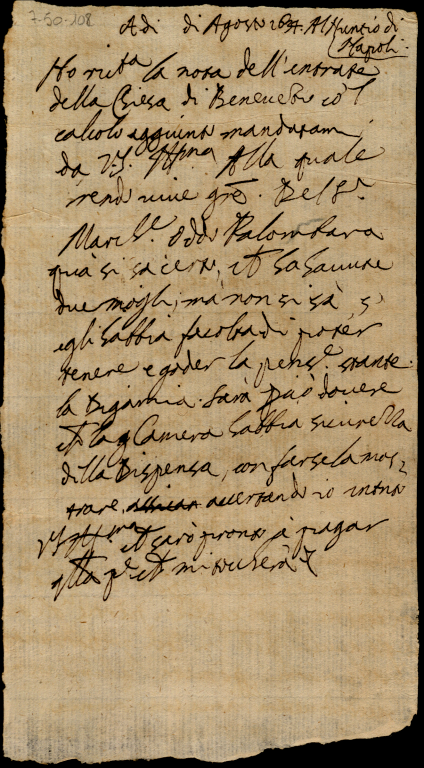 7-50-108
Adi di Agosto 1634. Al Nuntio di
Napoli.
Ho ricta la nota dell'entrate
della Chiesa di Benevento cō l
calcolo aggiunto mandatami
da VS. Illma Alla quale
rendo vive grē. Del Sr.
March.e Odo Palombara
quà si sa certo, ch ha havute
due mogli; mà non si sà s
egli habbia facoltà di poter
tenere e goder la pens.e stante
la Bigamia. Sarà però dovere
ch la Camera habbia sicurezza
della Dispensa, con farsela mos-
trare, accertando io intanto
VS Illma ch sarò pronto à pagar
qta ch mi toccherà